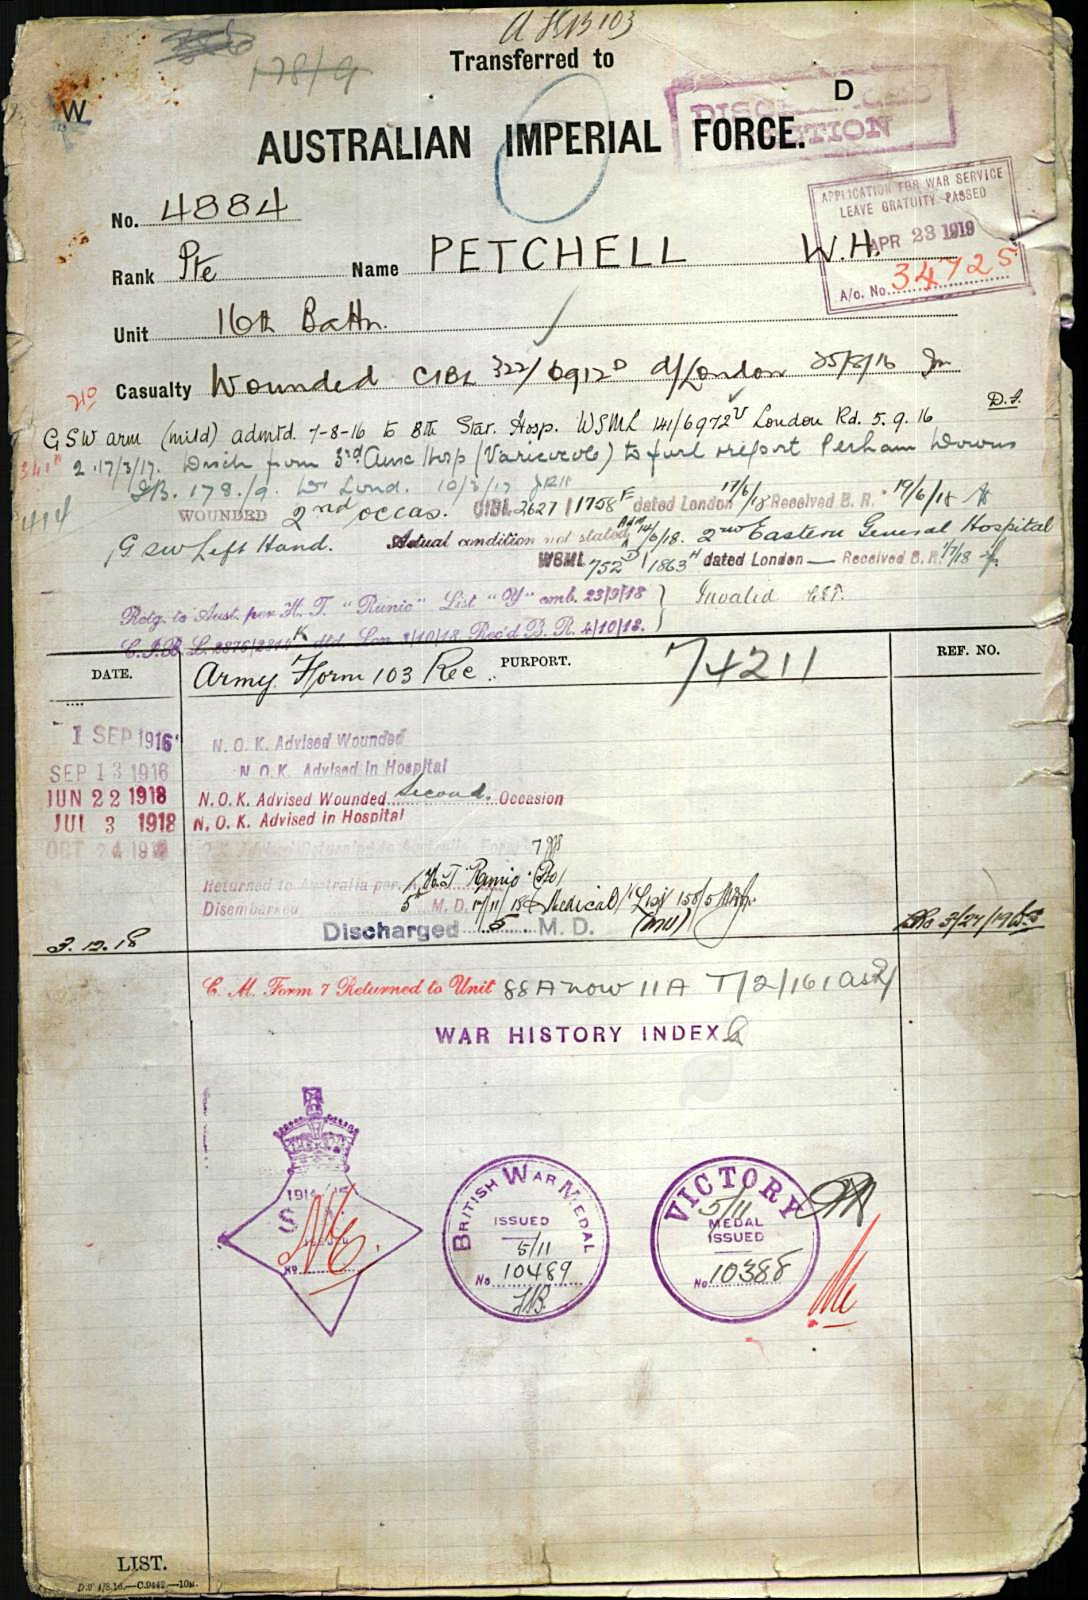 AFB 103
178/9
Transferred to
W
D
AUSTRALIAN IMPERIAL FORCE.
APPLICATION FOR WAR SERVICE
LEAVE GRATUITY PASSED
APR 23 1919
A/o. No. 34725
No. 4884
Rank Pte Name PETCHELL W.H.
Unit 16th Battn.
Casualty Wounded CIBL 322/6912D d/London 25/8/16
D.I.
GSW arm (mild) admtd. 7-8-16 to 8th Stat. Hosp. WSML 141/6972V London Rd. 5.9.16
2.17/3/17. Disch from 3rd Aux Hosp (Varicocele) to furl report Perham Downs
178/9. 10/3/17
WOUNDED 2nd occas. CIBL 2627/1758F dated London 17/6/18 Received B. R. 19/6/18
GSW Left Hand. Actual condition not stated Adm 14/6/18. 2nd Eastern General Hospital
WSML 752D/1863H dated London — Received B. R. 1/7/18
Retg. to Aust. per H. T. "Runic" List "Y" emb. 23/9/18 } Invalid
C.I.B. L. 2876/2814K dtd. Lon 1/10/18 Rec'd B. R. 4/10/18.
DATE.
PURPORT.
REF. NO.
Army Form 103 Rec. 74211
1 SEP 1916 N. O. K. Advised Wounded
SEP 13 1916 N. O. K. Advised in Hospital
JUN 22 1918 N. O. K. Advised Wounded second. Occasion
JUL 3 1918 N. O. K. Advised in Hospital
OCT 24 191
Returned to Australia per H.T. Runic
Disembarked 5th M. D. 17/11/18 Medical List 158/5
3.12.18 Discharged 5 M. D. (MU) 3/27/19
C. M. Form 7 Returned to Unit 88A now 11A T/2/161
WAR HISTORY INDEX
1914/15
S
No
BRITISH WAR MEDAL
ISSUED
5/11
No 10489
VICTORY
5/11
MEDAL
ISSUED
No 10388
LIST.
D.9 4/8.16.—C.9442—10M.